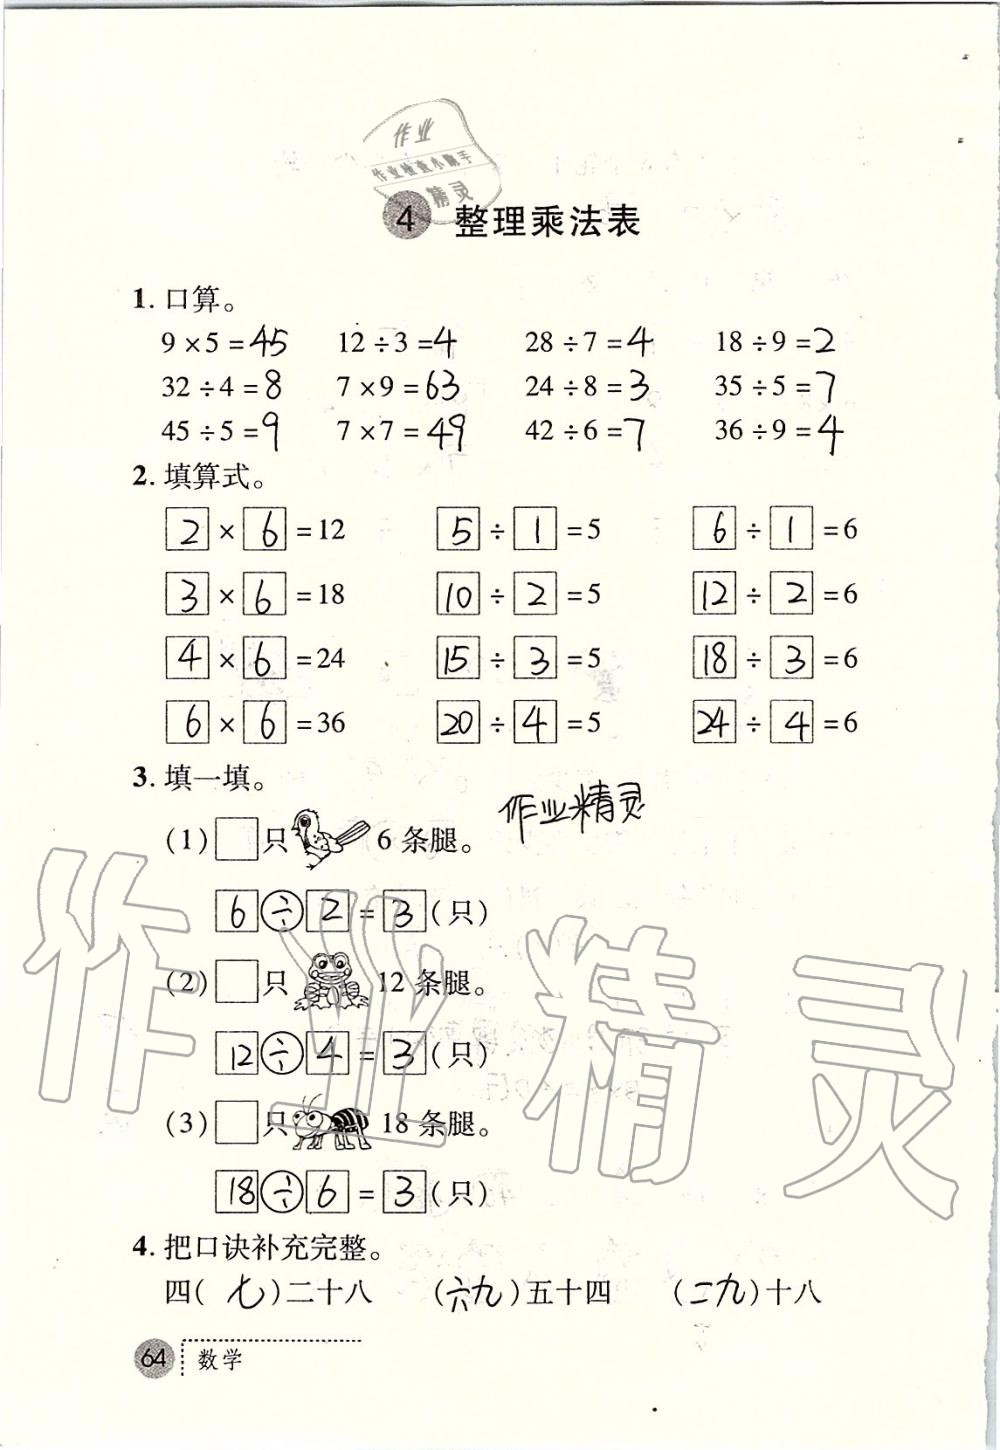 作业
作业检查小助手
精灵
4 整理乘法表
1. 口算。
9×5=45 12÷3=4 28÷7=4 18÷9=2
32÷4=8 7×9=63 24÷8=3 35÷5=7
45÷5=9 7×7=49 42÷6=7 36÷9=4
2. 填算式。
2×6=12 5÷1=5 6÷1=6
3×6=18 10÷2=5 12÷2=6
4×6=24 15÷3=5 18÷3=6
6×6=36 20÷4=5 24÷4=6
3. 填一填。
作业精灵
(1) □只 6条腿。
6÷2=3(只)
(2) □只 12条腿。
12÷4=3(只)
(3) □只 18条腿。
18÷6=3(只)
作业精灵
4. 把口诀补充完整。
四(七)二十八 (六九)五十四 (二九)十八
64 数学